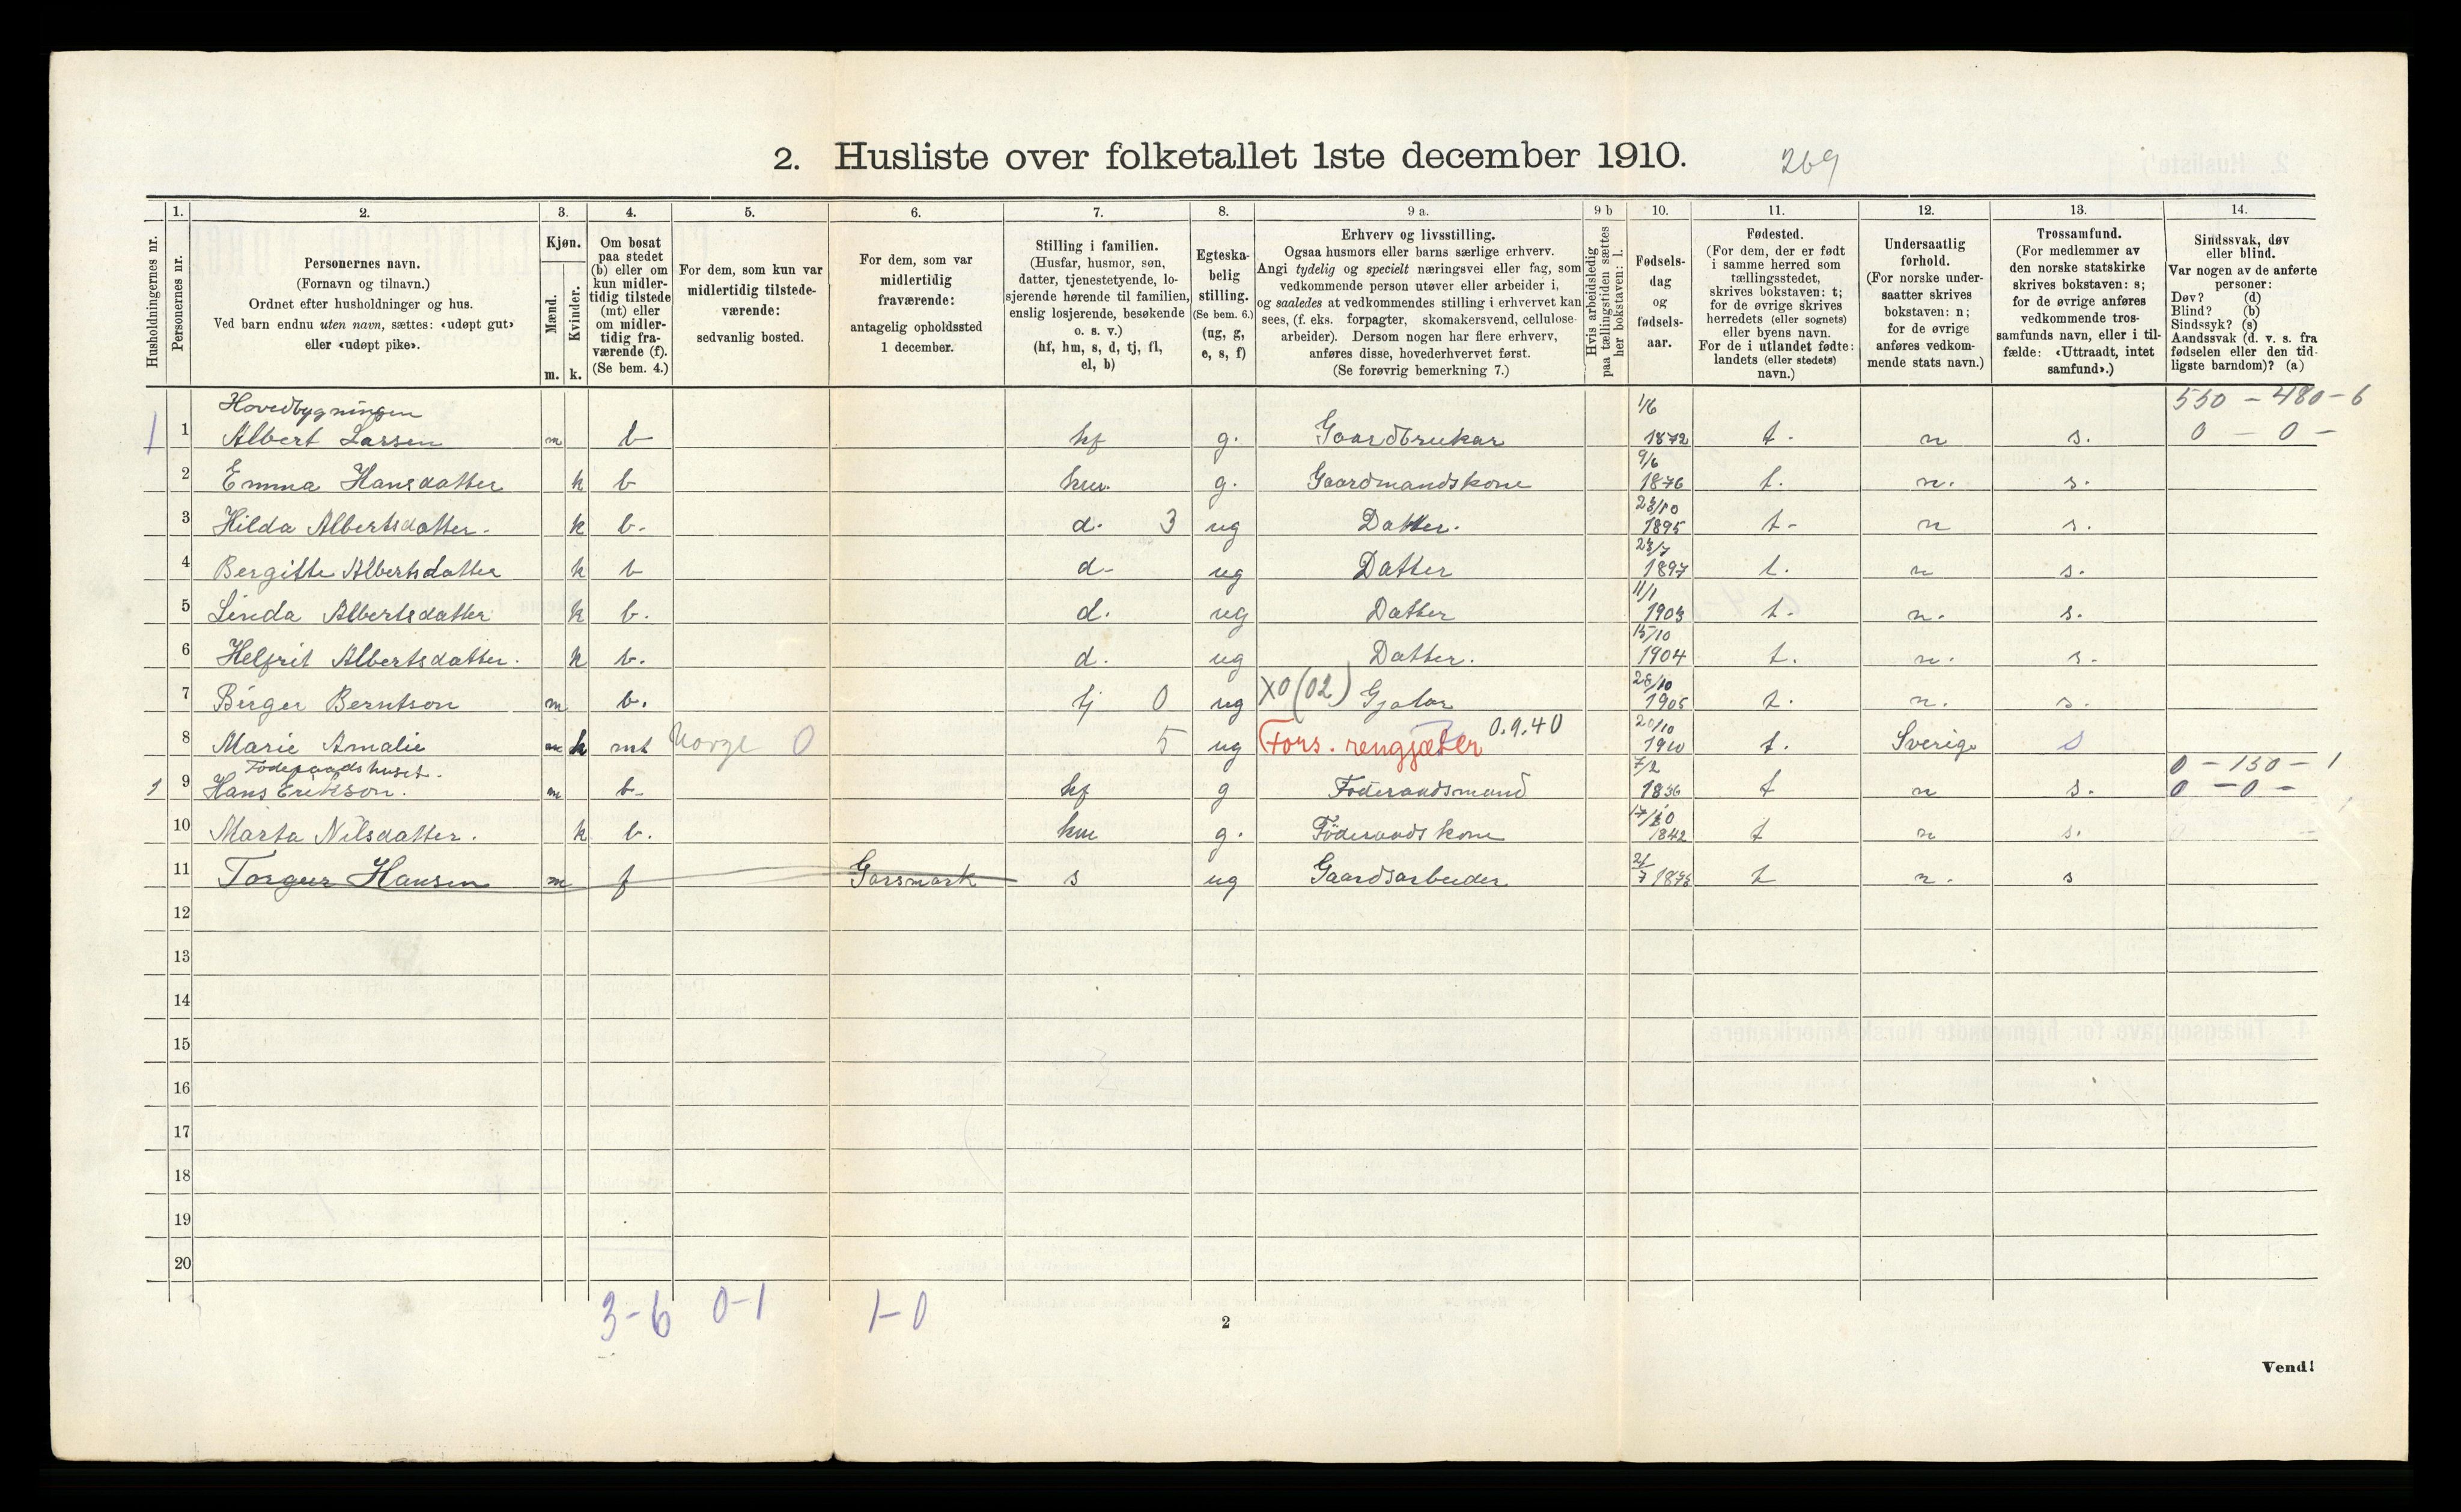 2. Husliste over folketallet 1ste december 1910.
269
1. 2. 3. 4. 5. 6. 7. 8. 9 a. 9 b 10. 11. 12. 13. 14.
Husholdningernes nr.
Personernes nr.
Personernes navn.
(Fornavn og tilnavn.)
Ordnet efter husholdninger og hus.
Ved barn endnu uten navn, sættes: «udøpt gut»
eller «udøpt pike».
Kjøn.
Mænd.
Kvinder.
m. k.
Om bosat
paa stedet
(b) eller om
kun midler-
tidig tilstede
(mt) eller
om midler-
tidig fra-
værende (f).
(Se bem. 4.)
For dem, som kun var
midlertidig tilstede-
værende:
sedvanlig bosted.
For dem, som var
midlertidig
fraværende:
antagelig opholdssted
1 december.
Stilling i familien.
(Husfar, husmor, søn,
datter, tjenestetyende, lo-
sjerende hørende til familien,
enslig losjerende, besøkende
o. s. v.)
(hf, hm, s, d, tj, fl,
el, b)
Egteska-
belig
stilling.
(Se bem. 6.)
(ug, g,
e, s, f)
Erhverv og livsstilling.
Ogsaa husmors eller barns særlige erhverv.
Angi tydelig og specielt næringsvei eller fag, som
vedkommende person utøver eller arbeider i,
og saaledes at vedkommendes stilling i erhvervet kan
sees, (f. eks. forpagter, skomakersvend, cellulose-
arbeider). Dersom nogen har flere erhverv,
anføres disse, hovederhvervet først.
(Se forøvrig bemerkning 7.)
Hvis arbeidsledig
paa tællingstiden sættes
her bokstaven: l.
Fødsels-
dag
og
fødsels-
aar.
Fødested.
(For dem, der er født
i samme herred som
tællingsstedet,
skrives bokstaven: t;
for de øvrige skrives
herredets (eller sognets)
eller byens navn.
For de i utlandet fødte:
landets (eller stedets)
navn.)
Undersaatlig
forhold.
(For norske under-
saatter skrives
bokstaven: n;
for de øvrige
anføres vedkom-
mende stats navn.)
Trossamfund.
(For medlemmer av
den norske statskirke
skrives bokstaven: s;
for de øvrige anføres
vedkommende tros-
samfunds navn, eller i til-
fælde: «Uttraadt, intet
samfund».)
Sindssvak, døv
eller blind.
Var nogen av de anførte
personer:
Døv? (d)
Blind? (b)
Sindssyk? (s)
Aandssvak (d. v. s. fra
fødselen eller den tid-
ligste barndom)? (a)
Hovedbygningen 1/6 550 - 480 - 6
1 1 Albert Larsen m b hf g. Gaardbrukar 1872 t. n s. 0 - 0 -
9/6
2 Emma Hansdatter k b hm. g. Gaardmandskone 1876 t. n. s.
23/10
3 Hilda Albertsdatter. k b. d. 3 ug Datter. 1895 t. n s.
23/7
4 Bergitte Albertsdatter k b d. ug Datter 1897 t. n s.
11/1
5 Linda Albertsdatter k b. d. ug Datter 1903 t. n. s.
15/10
6 Helfrit Albertsdatter. k b. d. ug Datter. 1904 t. n. s.
7 Birger Berntson m b. tj 0 ug X0 (02) 1905 t. n. s.
20/10
8 Marie Amalie m k mt Norge 0 5 ug Fors. 0.9.40 1910 t. Sverige s
Föderaadshuset. 7/2 0 - 130 - 1
1 9 Hans Erikson. m b. hf g Föderaadsmand 1836 t n s. 0 - 0 -
10 Marta Nilsdatter. k b. hm g. Föderaadskone 1842 t n s.
11 Torger Hansen m f Garsmark s ug Gaardsarbeider t n. s
12
13
14
15
16
17
18
19
20
3-6 0-1 1-0
2
Vend!